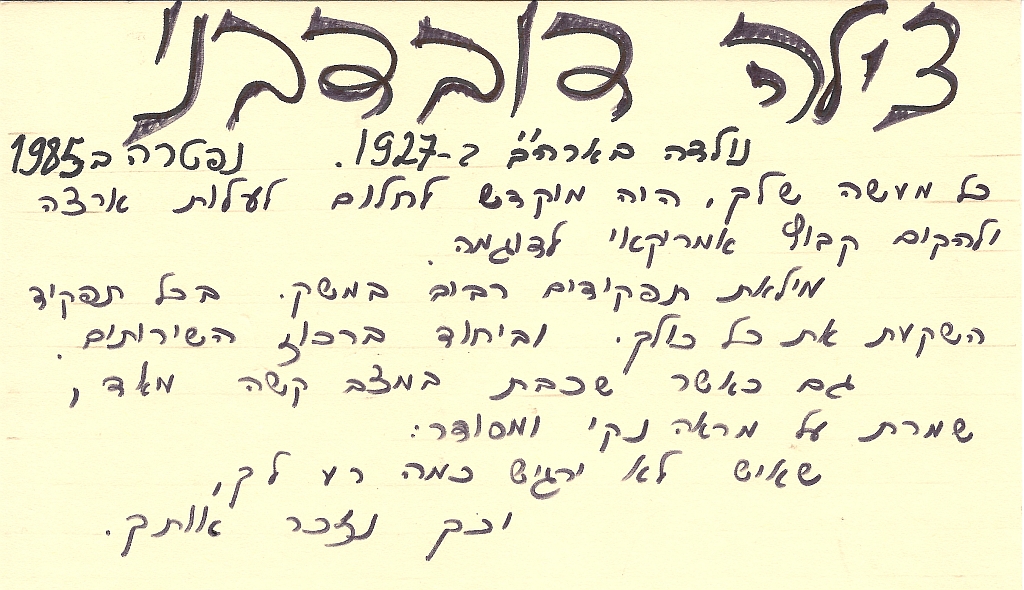 צילה דובדבני
נולדה בארה״ב ב-1927. נפטרה ב1985
כל מעשה שלך, היה מוקדש לחלום לעלות ארצה
ולהקים קבוץ אמריקאי לדוגמה.
מילאת תפקידים רבים במשק. בכל תפקיד
השקעת את כל כולך. וביחוד ברכוז השירותים.
גם כאשר שכבת במצב קשה מאד,
שמרת על מראה נקי ומסודר:
שאיש לא ירגיש כמה רע לך,
וכך נזכר אותך.